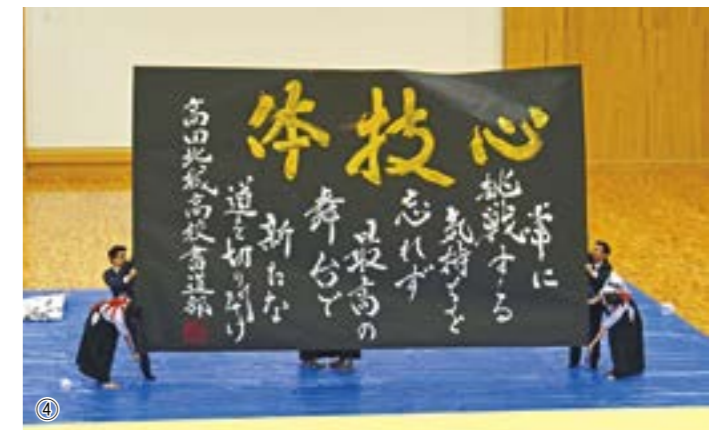 心技体
常に
挑戦する
気持ちを
忘れず
最高の
舞台で
新たな
道を切り拓け
高田北城高校書道部
④